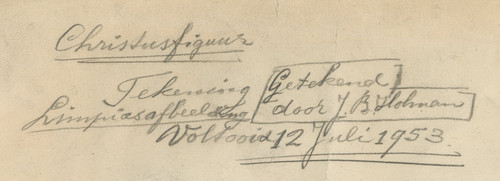 Christusfiguur
Tekening
Limpiasafbeelding
[Getekend
door J. B. Holman]
Voltooid 12 Juli 1953.